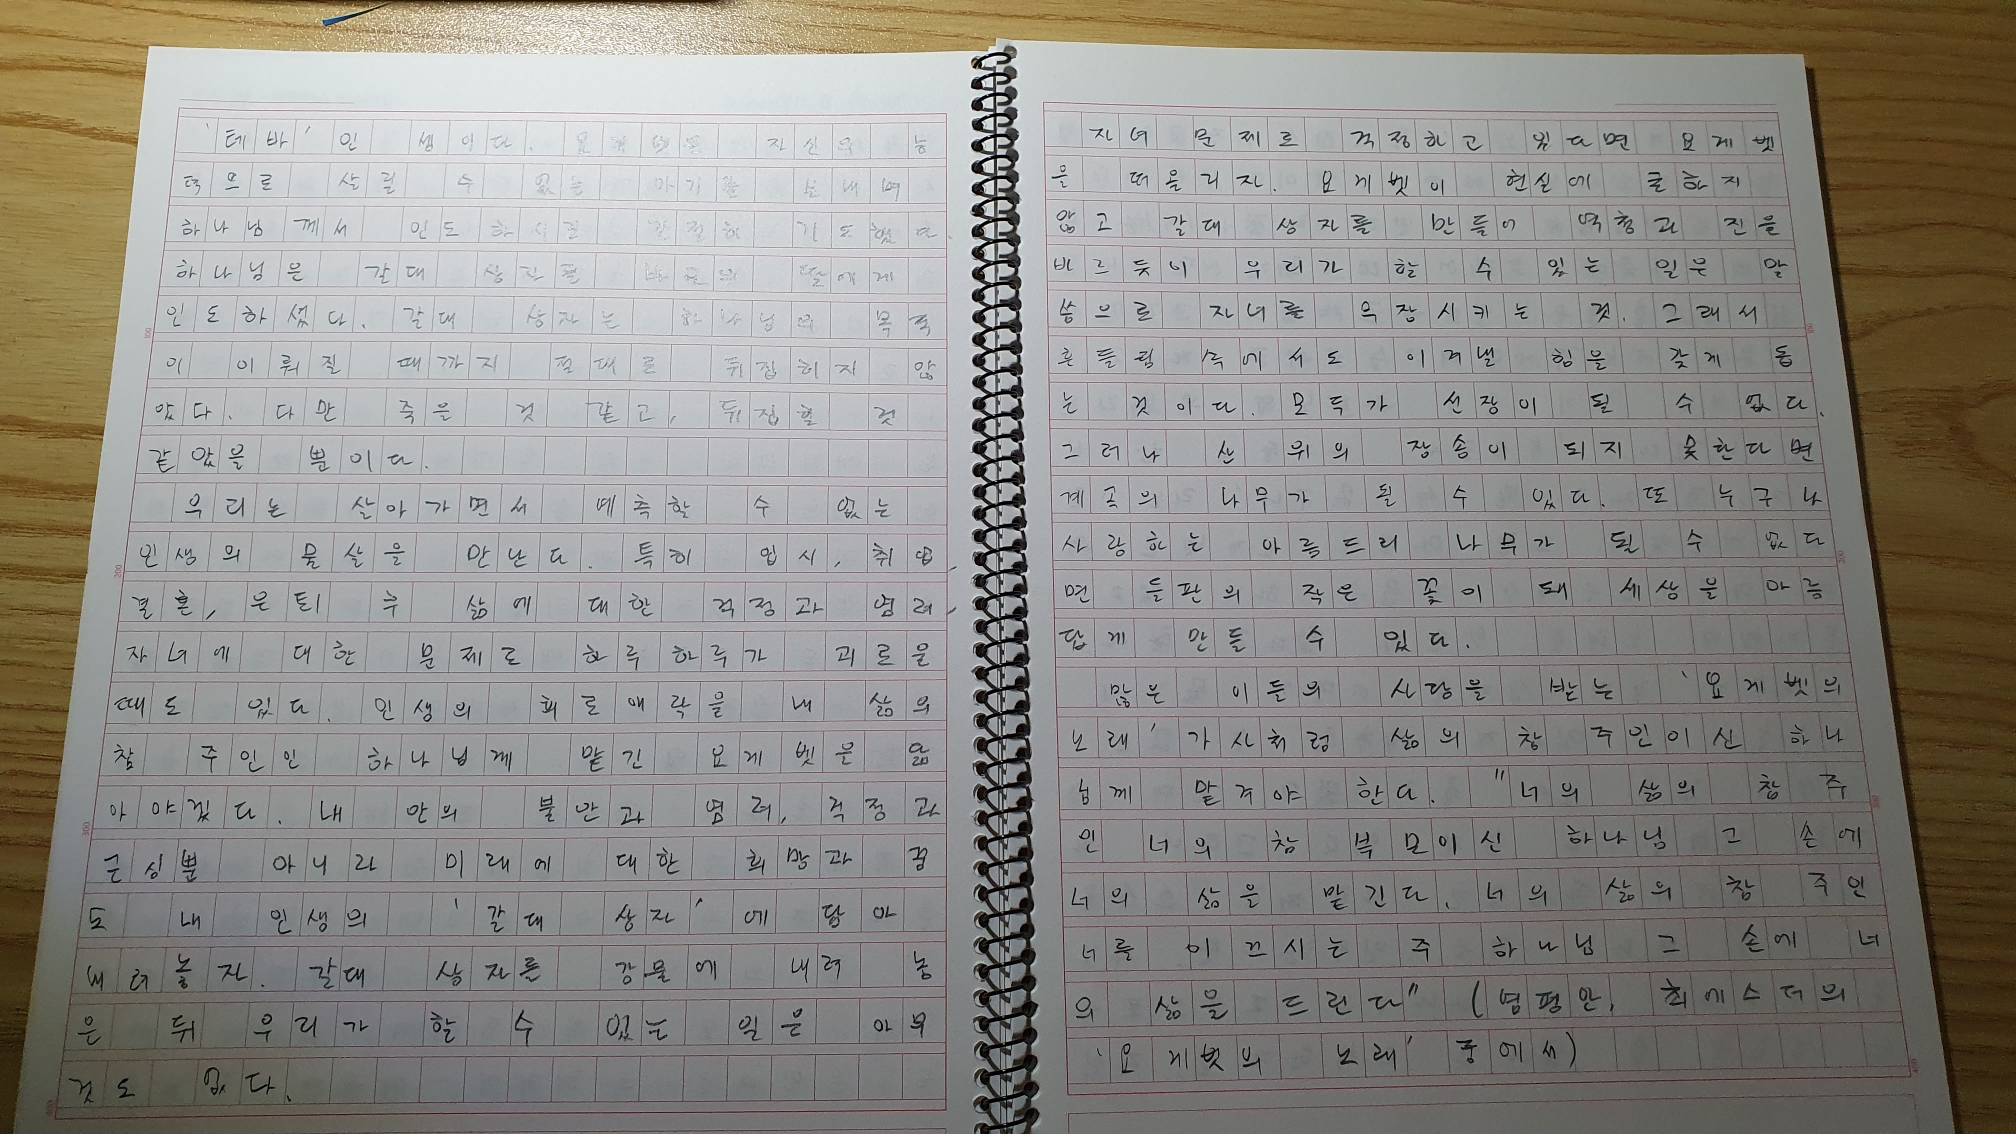 '테바' 인 셈이다. 요게벳은 자신의 능
력으로 살릴 수 없는 아기를 보내며
하나님께서 인도하시길 간절히 기도했다.
하나님은 갈대 상자를 바로의 딸에게
인도하셨다. 갈대 상자는 하나님의 목적
이 이뤄질 때까지 절대로 뒤집히지 않
았다. 다만 죽을 것 같고, 뒤집힐 것
같았을 뿐이다.
우리는 살아가면서 예측할 수 없는
인생의 물살을 만난다. 특히 입시, 취업,
결혼, 은퇴 후 삶에 대한 걱정과 염려,
자녀에 대한 문제로 하루하루가 괴로울
때도 있다. 인생의 희로애락을 내 삶의
참 주인인 하나님께 맡긴 요게벳을 닮
아야겠다. 내 안의 불안과 염려, 걱정과
근심뿐 아니라 미래에 대한 희망과 꿈
도 내 인생의 '갈대 상자'에 담아
내려놓자. 갈대 상자를 강물에 내려 놓
은 뒤 우리가 할 수 있는 일은 아무
것도 없다.
자녀 문제로 걱정하고 있다면 요게벳
을 떠올리자. 요게벳이 현실에 굴하지
않고 갈대 상자를 만들어 역청과 진을
바르듯이 우리가 할 수 있는 일은 말
씀으로 자녀를 무장시키는 것. 그래서
흔들림 속에서도 이겨낼 힘을 갖게 돕
는 것이다. 모두가 선장이 될 수 없다.
그러나 산 위의 장송이 되지 못한다면
계곡의 나무가 될 수 있다. 또 누구나
사랑하는 아름드리 나무가 될 수 없다
면 들판의 작은 꽃이 돼 세상을 아름
답게 만들 수 있다.
많은 이들의 사랑을 받는 '요게벳의
노래' 가사처럼 삶의 참 주인이신 하나
님께 맡겨야 한다. "너의 삶의 참 주
인 너의 참 부모이신 하나님 그 손에
너의 삶을 맡긴다. 너의 삶의 참 주인
너를 이끄시는 주 하나님 그 손에 너
의 삶을 드린다" (염평안, 최에스더의
'요게벳의 노래' 중에서)